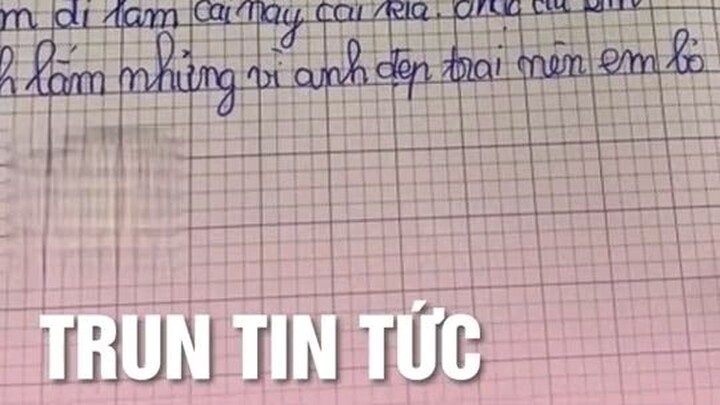 đi làm cái này cái kia.
lắm nhưng vì anh đẹp trai nên em bỏ
TRUN TIN TỨC